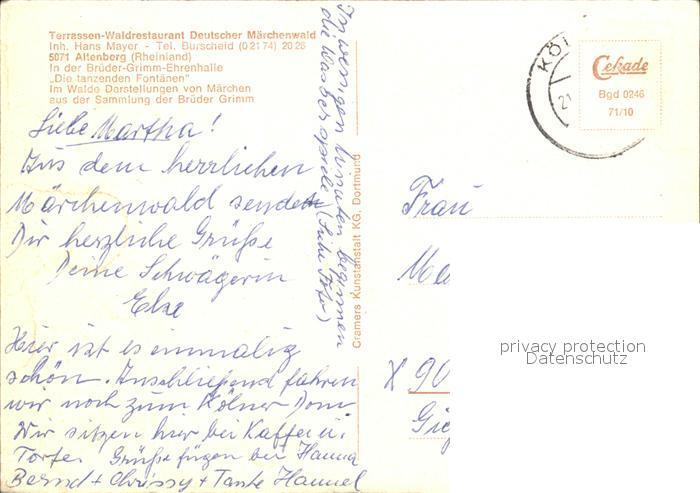 Terrassen-Waldrestaurant Deutscher Märchenwald
Inh. Hans Mayer - Tel. Burscheid (0 21 74) 20 26
5071 Altenberg (Rheinland)
In der Brüder-Grimm-Ehrenhalle
„Die tanzenden Fontänen"
Im Walde Darstellungen von Märchen
aus der Sammlung der Brüder Grimm
Liebe Martha!
Aus dem herrlichen
Märchenwald sende
Dir herzliche Grüße
Deine Schwägerin
Else
Hier ist es einmalig
schön. Anschließend fahren
wir noch zum Kölner Dom
Wir sitzen hier bei Kaffee u.
Torte. Grüße fügen bei Hanna
Bernd + Chrissy + Tante Hannel
In wenigen Minuten beginnen
die Wasserspiele (Siehe Foto)
Cramers Kunstanstalt KG. Dortmund
KÖL
21
Cekade
Bgd 0246
71/10
Frau
Ma
X 90
privacy protection
Datenschutz